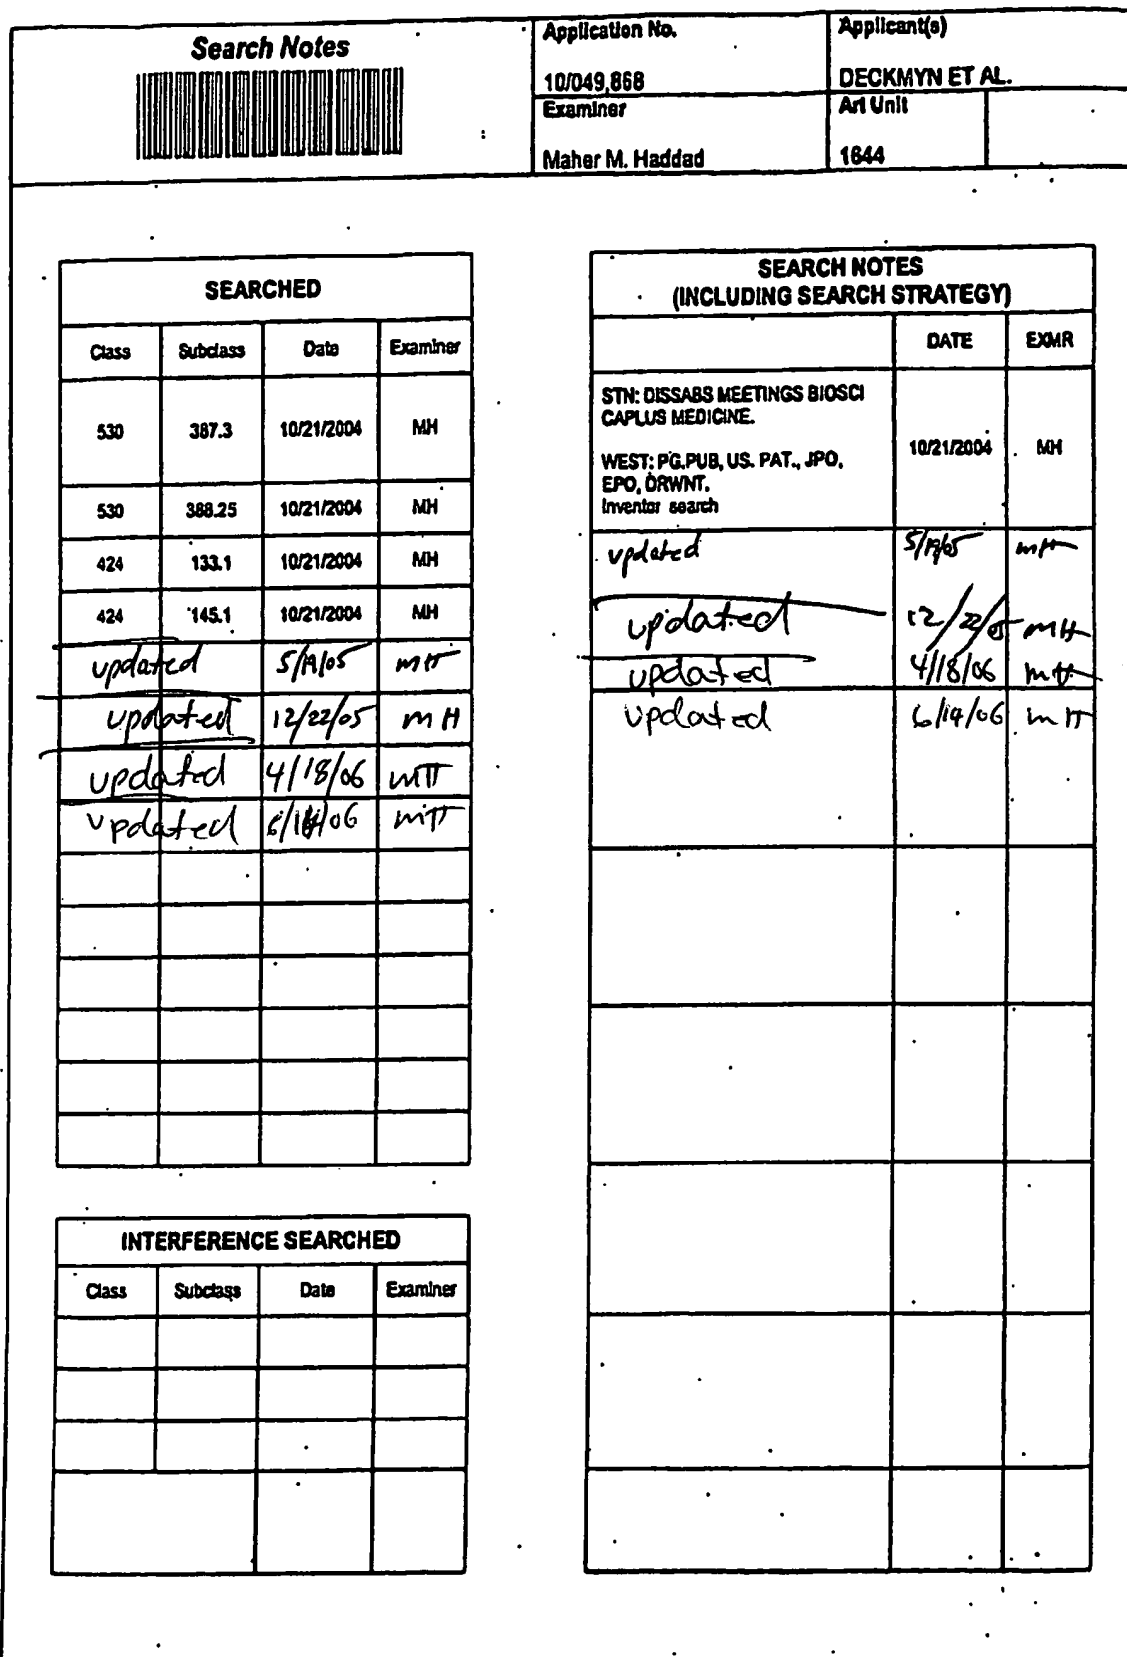 Search Notes
Application No.
Applicant(s)
10/049,868
DECKMYN ET AL.
Examiner
Art Unit
Maher M. Haddad
1644
SEARCHED
Class Subclass Date Examiner
530 387.3 10/21/2004 MH
530 388.25 10/21/2004 MH
424 133.1 10/21/2004 MH
424 145.1 10/21/2004 MH
updated 5/19/05 MH
updated 12/22/05 MH
updated 4/18/06 MH
updated 6/14/06 MH
INTERFERENCE SEARCHED
Class Subclass Date Examiner
SEARCH NOTES
(INCLUDING SEARCH STRATEGY)
DATE EXMR
STN: DISSABS MEETINGS BIOSCI
CAPLUS MEDICINE.
10/21/2004 MH
WEST: PG.PUB, US. PAT., JPO,
EPO, DRWNT.
Inventor search
updated 5/19/05 MH
updated 12/22/05 MH
updated 4/18/06 MH
updated 6/14/06 MH